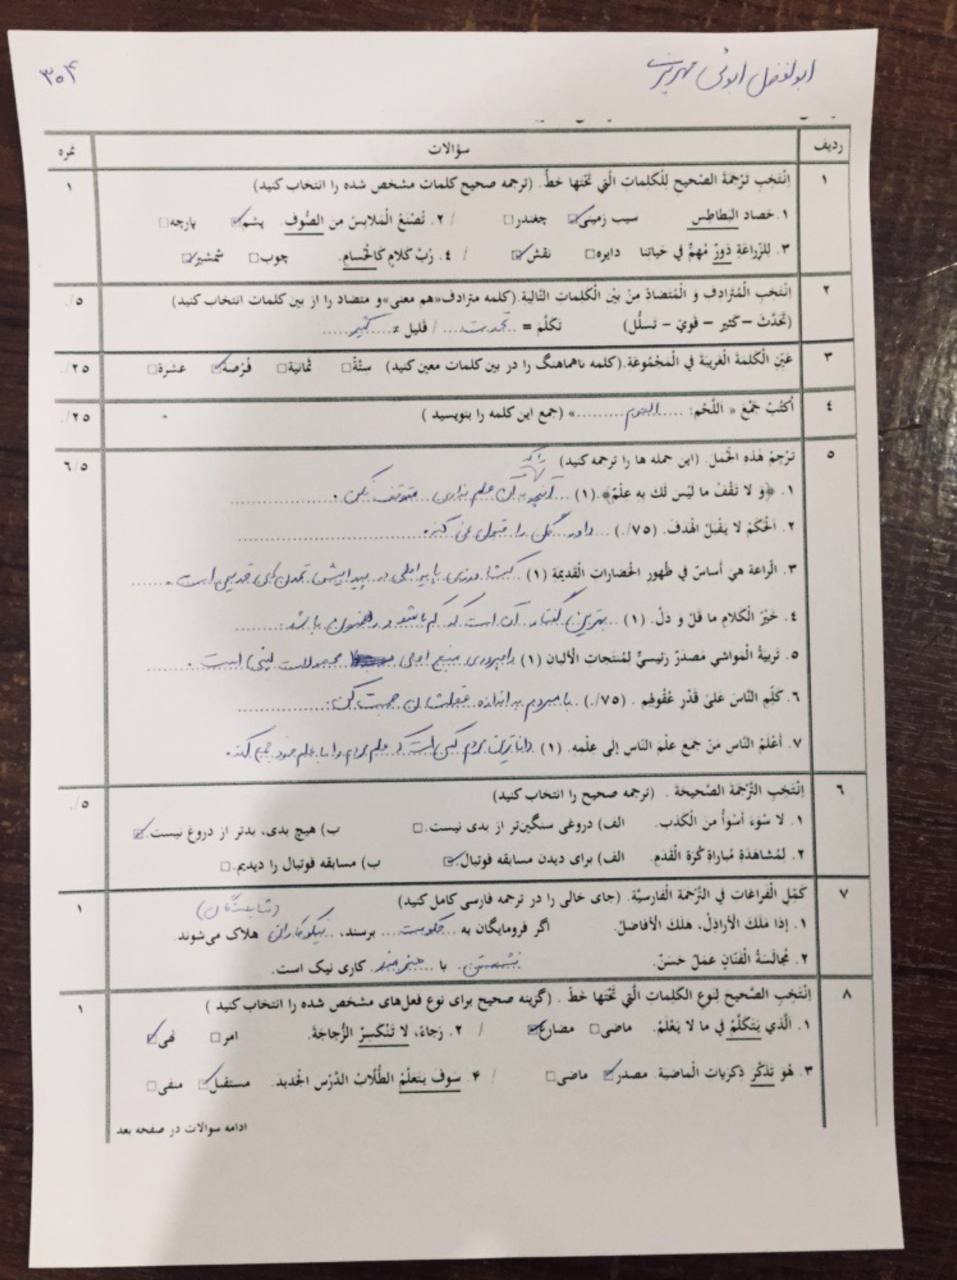 ابوالفضل ابوئی مهریزی
۳۰۴
ردیف سؤالات نمره
۱ اِنْتَخِبِ تَرْجَمَةَ الصَّحیحِ لِلْکَلِماتِ الَّتي تَحْتَها خَطٌّ. (ترجمه صحیح کلمات مشخص شده را انتخاب کنید) ۱
۱. حَصاد البَطاطِس سیب زمینی☑ چغندر□ / ۲. تُصْنَعُ الْمَلابِسُ مِنَ الصُّوف. پشم☑ پارچه□
۳. لِلزِّراعَةِ دَورٌ مُهِمٌّ في حَیاتِنا دایره□ نقش☑ / ٤. رُبَّ کَلامٍ کَالْحُسامِ. چوب□ شمشیر☑
۲ اِنْتَخِبِ الْمُتَرادِفَ وَ الْمُتَضادَّ مِنْ بَیْنِ الْکَلِماتِ التّالیَة.(کلمه مترادف«هم معنی»و متضاد را از بین کلمات انتخاب کنید) ۵/.
(تَحَدَّثَ – کَثیر – قَويّ – تَسَلُّل) تَکَلَّمَ = ...تحدث... / قَلیل ≠ ...کثیر...
۳ عَیِّنِ الْکَلِمَةَ الْغَریبَةَ في الْمَجْموعَة.(کلمه ناهماهنگ را در بین کلمات معین کنید) سِتَّةُ□ ثَمانیَة□ فُرْصَة☑ عَشَرة□ ۲۵/.
٤ اُکْتُبْ جَمْعَ « اللَّحْم: ............» (جمع این کلمه را بنویسید ) ۲۵/.
۵ تَرْجِمْ هٰذِهِ الْجُمَلَ. (این جمله ها را ترجمه کنید) ۶/۵
۱. ﴿وَ لا تَقْفُ ما لَیْسَ لَكَ بِهِ عِلْمٌ﴾.(۱) ...آنچه به آن علم نداری
۲. اَلْحَکَمُ لا یَقْبَلُ الْهَدَفَ. (۷۵/.) ...داور گل را قبول نمی کند.
۳. الّراعة هيَ أساسٌ في ظُهورِ الْحَضاراتِ الْقَدیمَةِ (۱) کشاورزی پایه اصلی در پیدایش تمدن های قدیمی است.
٤. خَیْرُ الْکَلامِ ما قَلَّ وَ دَلَّ. (۱) ...بهترین گفتار آن است که کم باشد و رهنمون باشد.
۵. تَربیَةُ الْمَواشي مَصدَرٌ رَئیسيٌّ لِمُنتَجاتِ الْألبان (۱) دامپروری منبع اصلی محصولات لبنی است.
۶. کَلِّمِ النّاسَ عَلیٰ قَدْرِ عُقُولِهِم . (۷۵/.) با مردم به اندازه عقلشان صحبت کن.
۷. أَعْلَمُ النّاسِ مَنْ جَمَعَ عِلْمَ النّاسِ إلی عِلْمِه. (۱) داناترین مردم کسی است که علم مردم را با علم خود جمع کند.
۶ اِنْتَخِبِ التَّرْجَمَةَ الصَّحیحَة . (ترجمه صحیح را انتخاب کنید) ۵/.
۱. لا سُوءَ أَسْوَأُ مِنَ الْکَذِب. الف) دروغی سنگین‌تر از بدی نیست.□ ب) هیچ بدی، بدتر از دروغ نیست.☑
۲. لِمُشاهَدَةِ مُباراةِ کُرَةِ الْقَدَمِ. الف) برای دیدن مسابقه فوتبال☑ ب) مسابقه فوتبال را دیدیم.□
۷ کَمِّلِ الْفَراغاتِ في التَّرْجَمَةِ الْفارِسیَّة. (جای خالی را در ترجمه فارسی کامل کنید) (شایستگان) ۱
۱. إذا مَلَكَ الْأَراذِلُ، هَلَكَ الْأَفاضِلُ. اگر فرومایگان به ...حکومت... برسند، ..نیکوکاران هلاک می‌شوند.
۲. مُجالَسَةُ الْفَنّانِ عَمَلٌ حَسَنٌ. نشستن. با ...هنرمند. کاری نیک است.
۸ اِنْتَخِبِ الصَّحیحَ لِنَوعِ الکَلِماتِ الَّتي تَحْتَها خَطّ . (گزینه صحیح برای نوع فعل‌های مشخص شده را انتخاب کنید ) ۱
۱. اَلَّذي یَتَکَلَّمُ في ما لا یَعْلَمُ. ماضی□ مضارع☑ / ۲. رَجاءً، لا تَنْکَسِرُ الزُّجاجَةَ. امر□ نهی☑
۳. هُوَ تَذَکَّرَ ذِکریاتِ الْماضیَة. مصدر☑ ماضی□ / ۴. سَوفَ یَتَعلَّمُ الطُّلّابُ الدَّرْسَ الْجَدیدَ. مستقبل☑ منفی□
ادامه سوالات در صفحه بعد